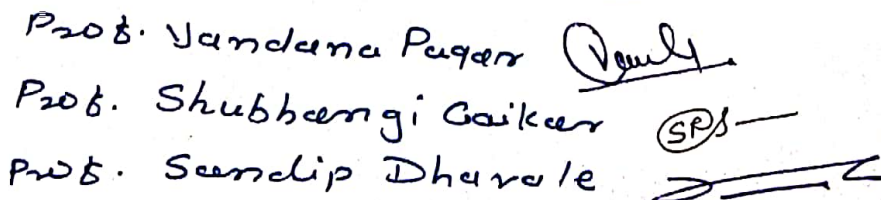 Prof. Vandana Pagar
Prof. Shubhangi Gaikar SRS
Prof. Sandip Dhavale